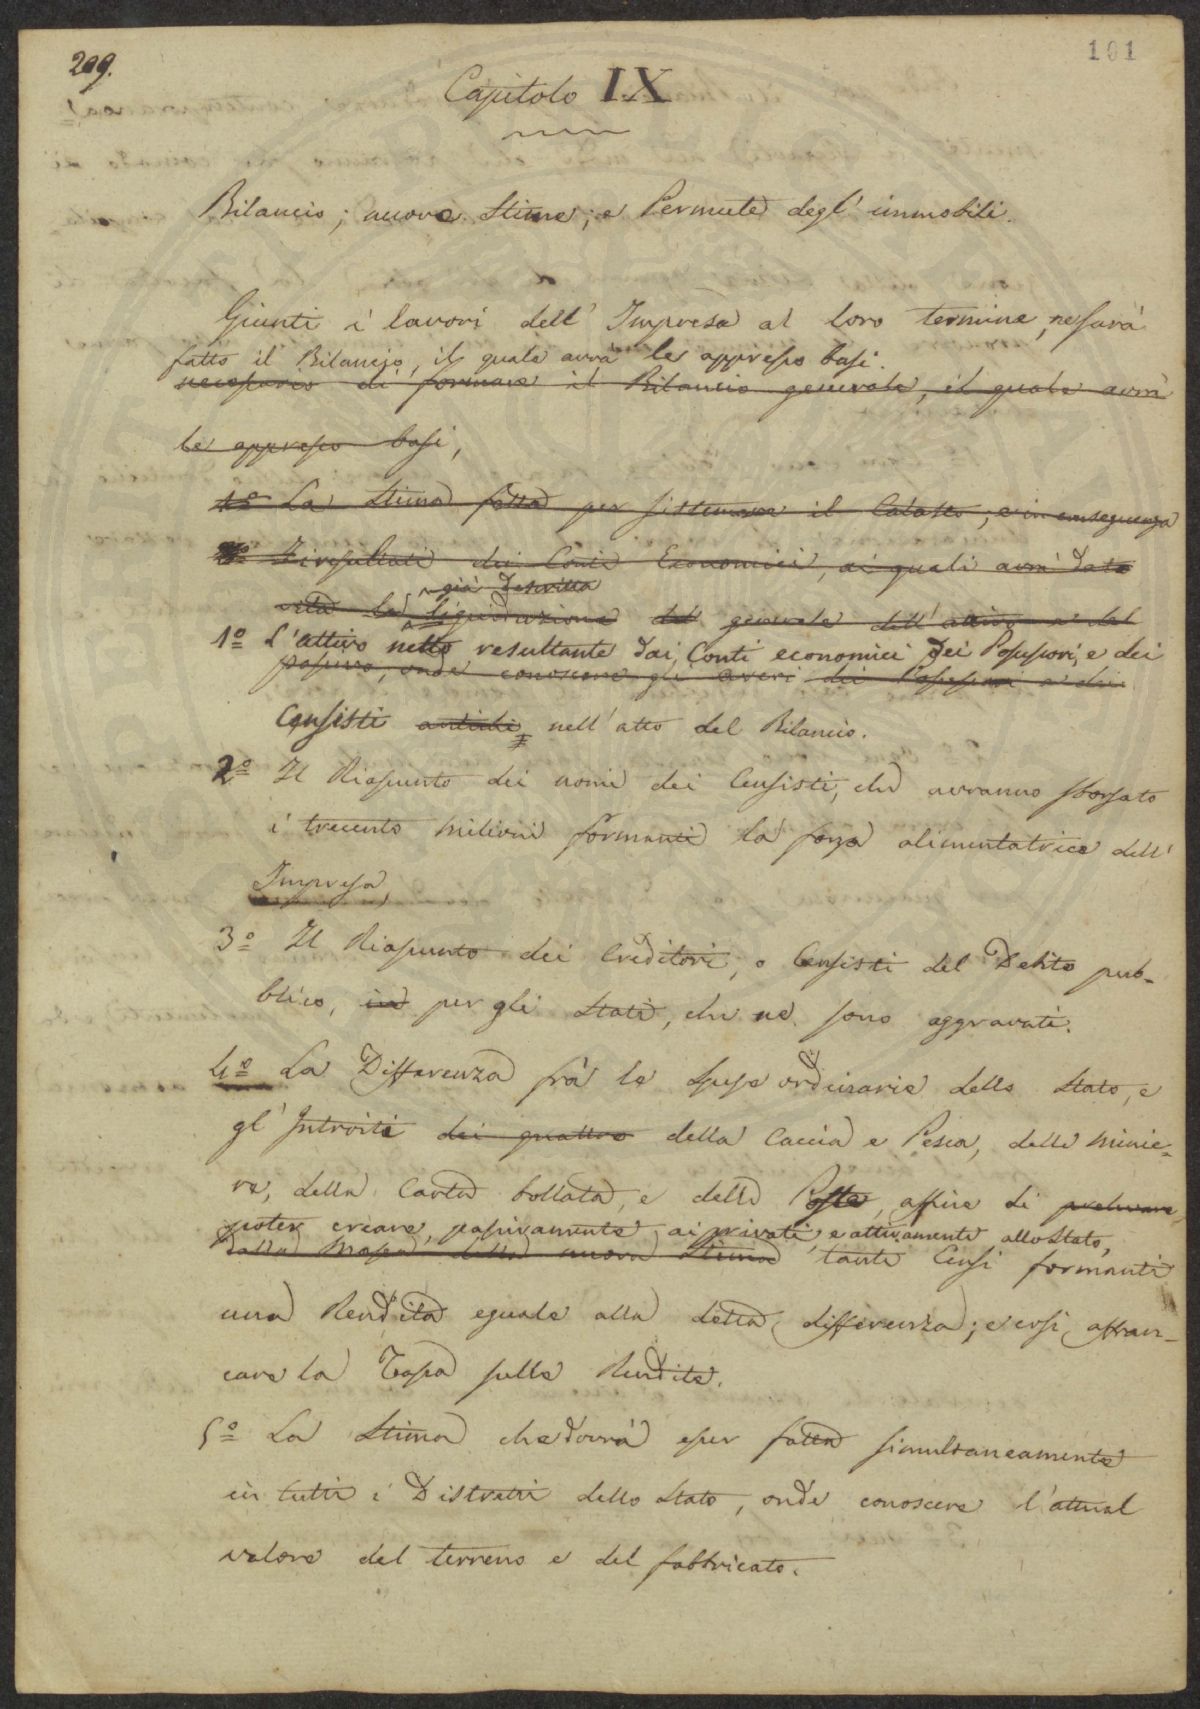 209.
101
Capitolo IX
Bilancio; nuove Stime; e Permute degl' immobili.
Giunti i lavori dell' Impresa al loro termine, ne sarà
fatto il Bilancio, il quale avrà le appresso basi.
necessario di formare il Bilancio generale, il quale avrà
le appresso basi,
1º La Stima fatta per sistemare il Catasto; e in conseguenza
I resultati dei Conti Economici, ai quali avrà dato
già descritta
vita la liquidazione del generale dell' attivo e del
1º L'attivo netto resultante dai Conti economici dei Possessori, e dei
passivo, onde conoscere gli averi dei Possessori e dei
Censisti antichi nell' atto del Bilancio.
2º Il Riassunto dei nomi dei Censisti, che avranno sborsato
i trecento milioni formanti la forza alimentatrice dell'
Impresa,
3º Il Riassunto dei Creditori, o Censisti del Debito pub-
blico, per gli Stati, che ne sono aggravati.
4º La Differenza frà le spese ordinarie dello Stato, e
gl' Introiti dei quattro della Caccia e Pesca, delle Minie=
re, della Carta bollata, e delle Poste, affine di prelevare
poter creare, passivamente ai privati e attivamente allo Stato,
dalla Massa della nuova Stima tanti Censi formanti
una Rendita eguale alla detta differenza; e così affran-
care la Tassa sulle Rendite.
5º La Stima che dovrà esser fatta simultaneamente
in tutti i Distretti dello Stato, onde conoscere l'attual
valore del terreno e del fabbricato.